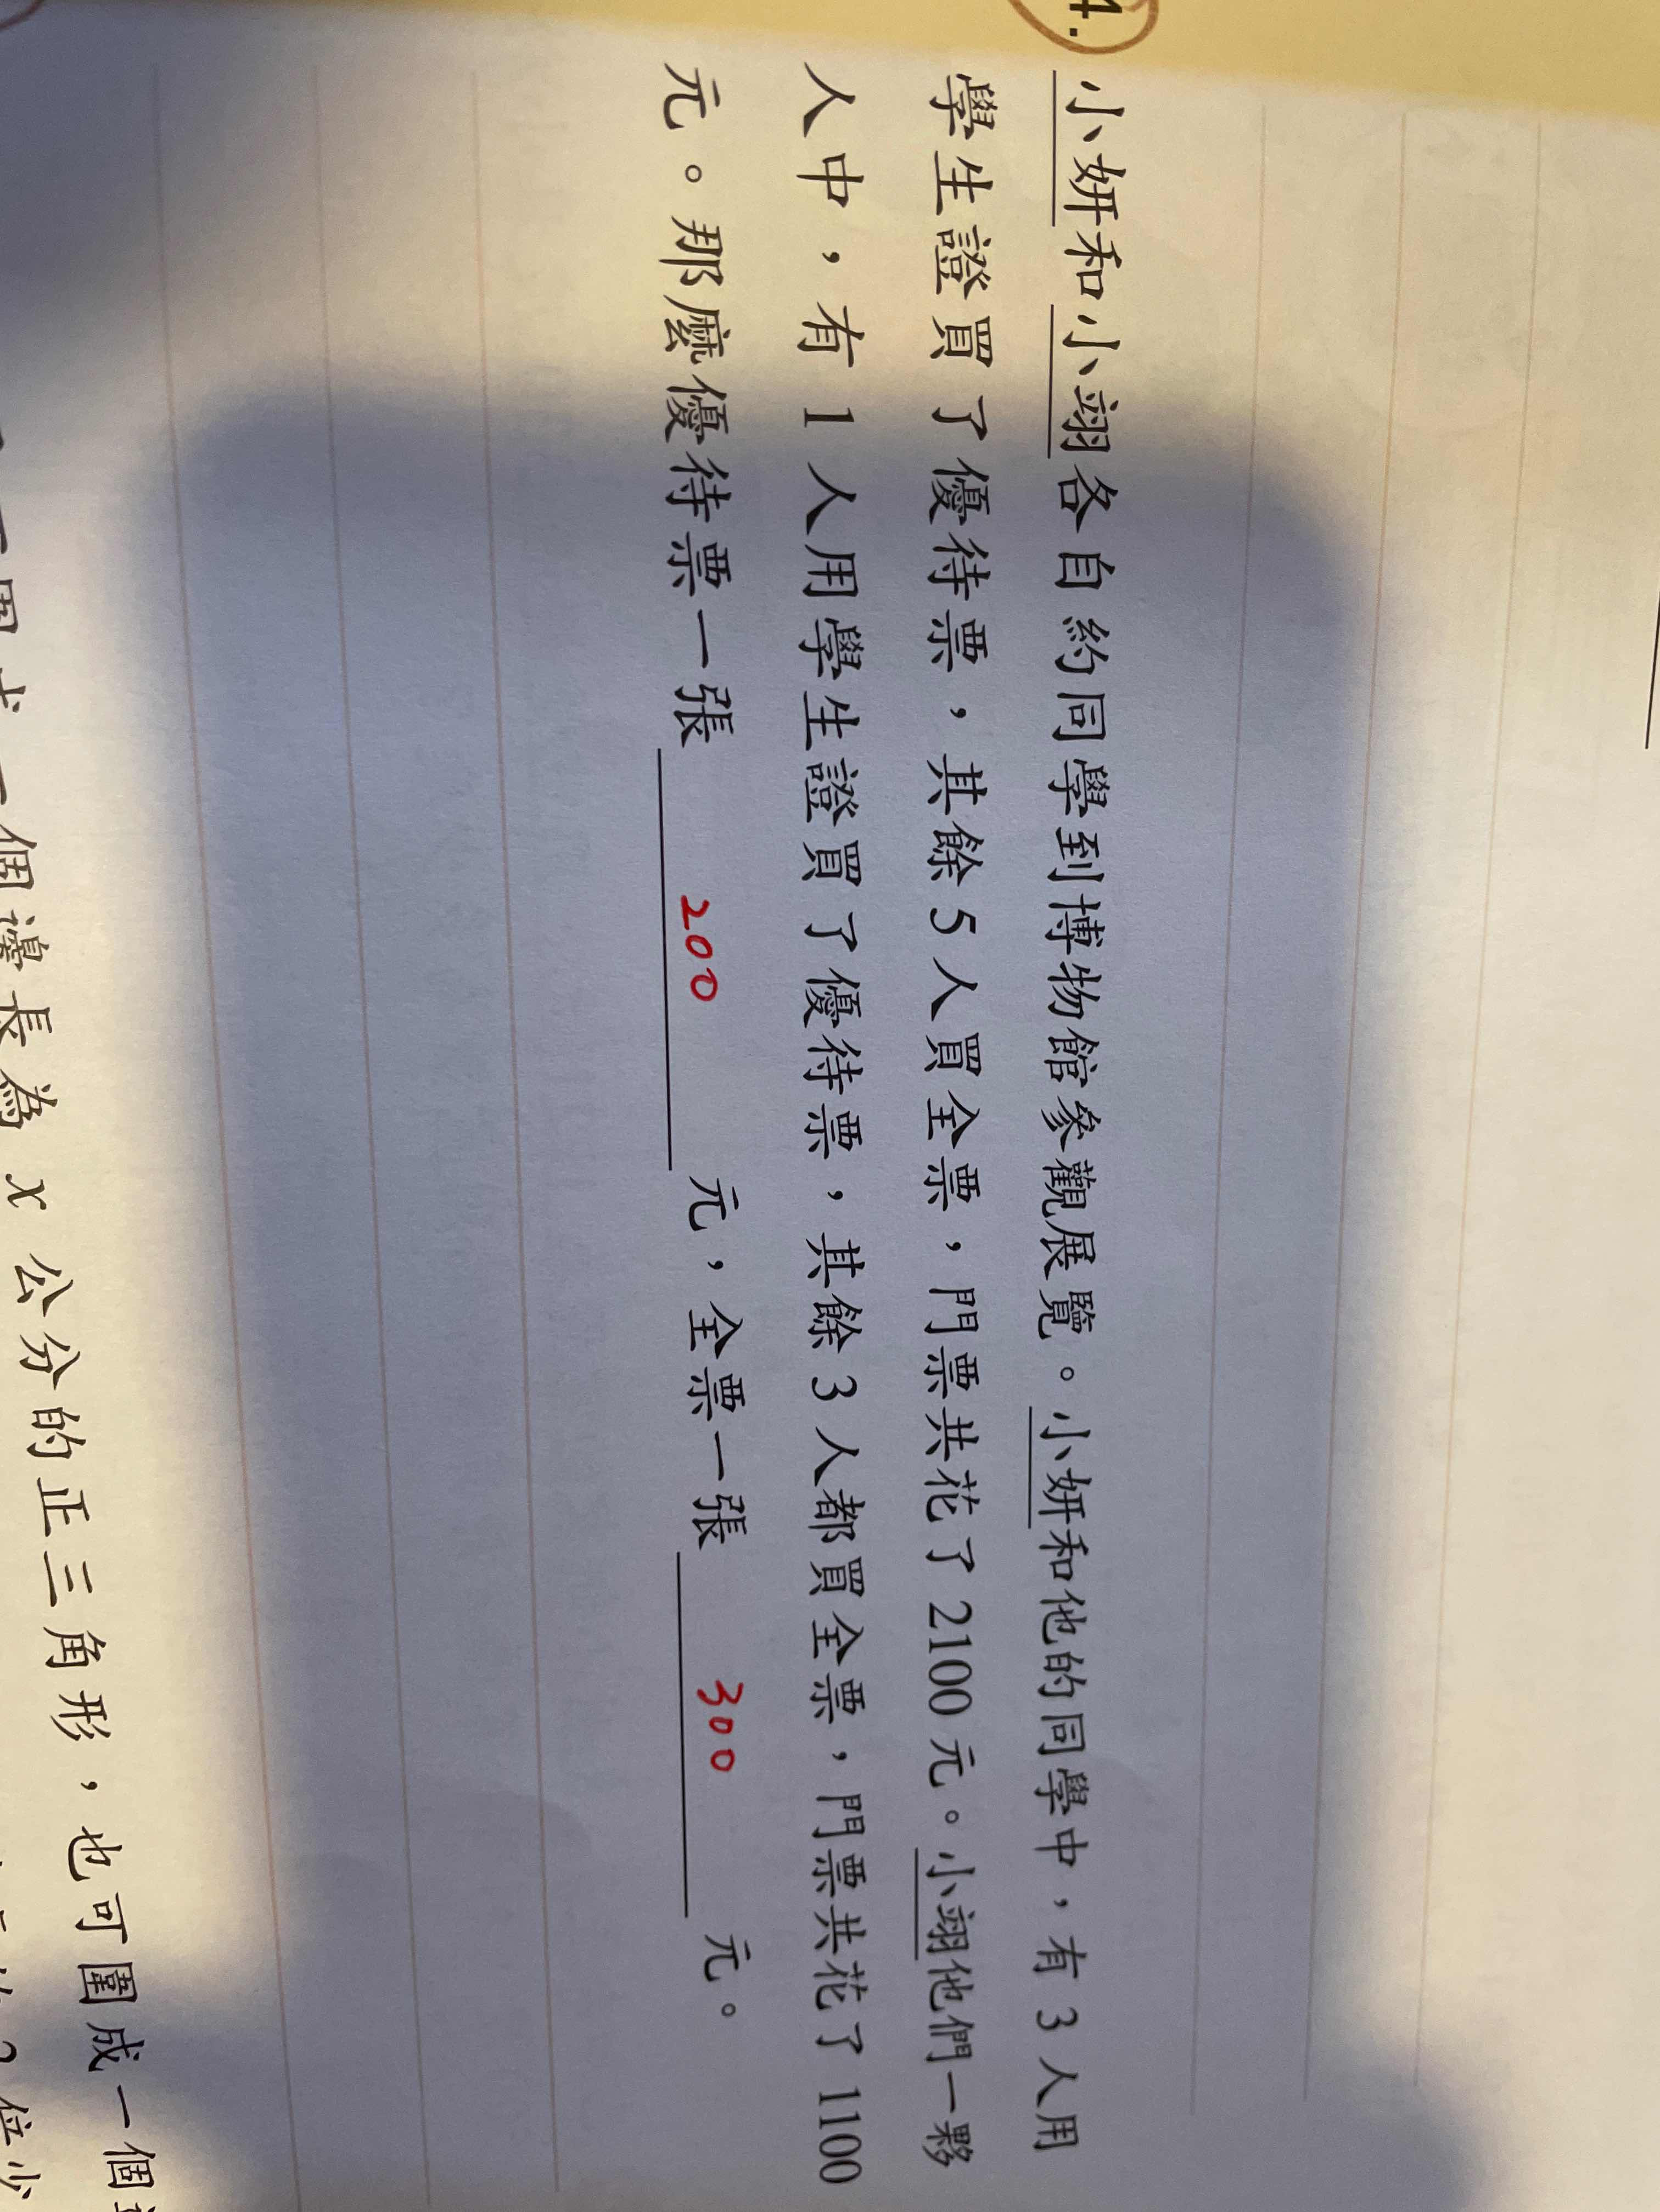 4.
小妍和小翊各自約同學到博物館參觀展覽。小妍和他的同學中，有 3 人用
學生證買了優待票，其餘 5 人買全票，門票共花了 2100 元。小翊他們一夥
人中，有 1 人用學生證買了優待票，其餘 3 人都買全票，門票共花了 1100
元。那麼優待票一張 200 元，全票一張 300 元。
個邊長為 x 公分的正三角形，也可圍成一個